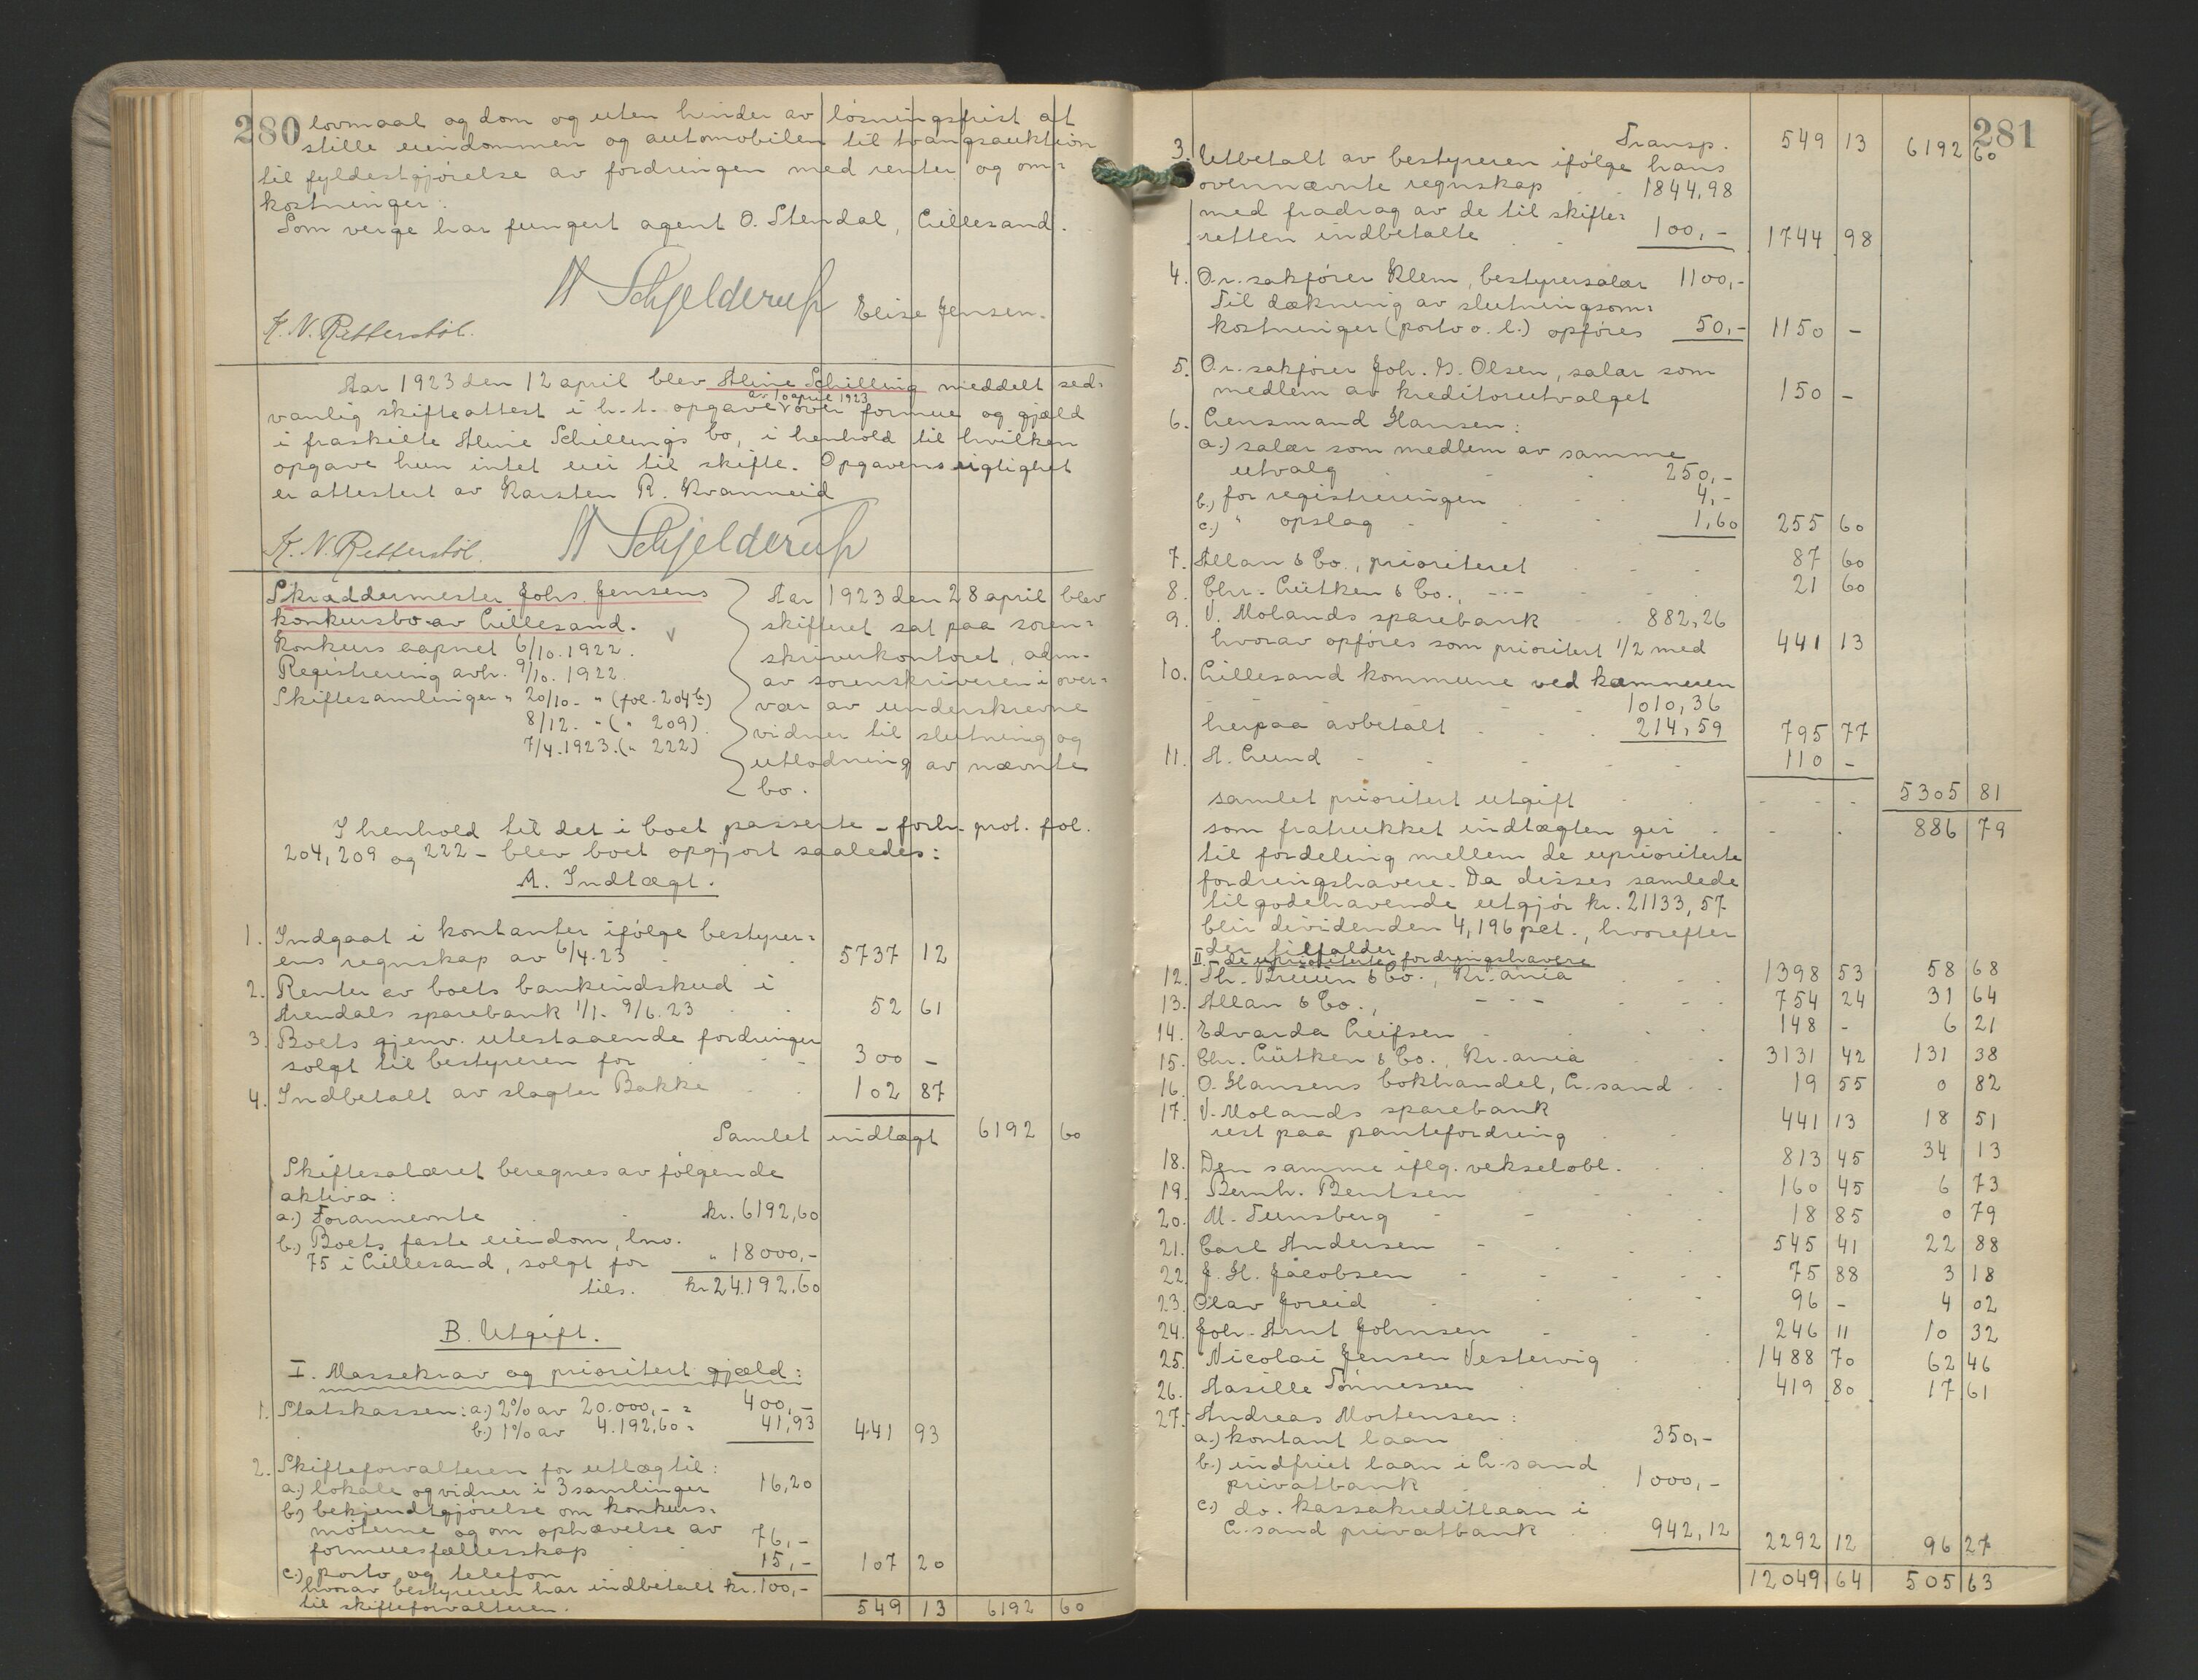 280 lovmaal og dom og uten hinder av løsningsfrist at
stille eiendommen og automobilen til tvangsauktion
til fyldestgjørelse av fordringen med renter og om=
kostninger.
Som verge har fungert agent O. Stendal, Lillesand.
K. N. Retterstøl. A Schjelderup Elise Jensen.
Aar 1923 den 12 april blev Aline Schilling meddelt sed=
av 10 april 1923
vanlig skifteattest i h. t. opgave v over formue og gjæld
i fraskilte Aline Schillings bo, i henhold til hvilken
opgave hun intet eier til skifte. Opgavens rigtighet
er attestert av Karsten R. Kvanneid
K. N. Retterstøl. A Schjelderup
Skræddermester Johs. Jensens
konkursbo av Lillesand.
Konkurs aapnet 6/10. 1922.
Registrering avh. 9/10. 1922.
Skiftesamlinger " 20/10 - " (fol. 204b)
8/12. - " (" 209)
7/4. 1923. (" 222)
Aar 1923 den 28 april blev
skifteret sat paa soren=
skriverkontoret, adm.
av sorenskriveren i over=
vær av underskrevne
vidner til slutning og
utlodning av nævnte
bo.
I henhold til det i boet passerte - forh. prot. fol.
204, 209 og 222 - blev boet opgjort saaledes:
A. Indtægt.
1. Indgaat i kontanter ifølge bestyrer=
ens regnskap av 6/4. 23 5737 12
2. Renter av boets bankindskud i
Arendals sparebank 1/1 - 9/6. 23 52 61
3. Boets gjenv. utestaaende fordringer
solgt til bestyreren for 300 -
4. Indbetalt av slagter Bakke 102 87
Samlet indtægt 6192 60
Skiftesalæret beregnes av følgende
aktiva:
a.) Forannevnte kr. 6192,60
b.) Boets faste eiendom, lno.
75 i Lillesand, solgt for " 18000,-
tils. kr 24.192.60
B. Utgift.
I. Massekrav og prioritert gjæld:
1. Statskassen: a.) 2% av 20.000,- = 400,-
b.) 1% av 4.192,60 = 41,93 441 93
2. Skifteforvalteren for utlæg til:
a.) lokale og vidner i 3 samlinger 16,20
b.) bekjendtgjørelse om konkurs=
møterne og om ophævelse av
formuesfællesskap 76,-
c.) porto og telefon 15,- 107 20
hvorav bestyreren har indbetalt kr. 100,-
til skifteforvalteren.
549 13 6192 60
281
Transp. 549 13 6192 60
3. Utbetalt av bestyreren ifølge hans
ovennævnte regnskap 1844,98
med fradrag av de til skifte=
retten indbetalte 100,- 1744 98
4. O.r. sakfører Klem, bestyrersalær 1100,-
Til dækning av slutningsom=
kostninger (porto o. l.) opføres 50,- 1150 -
5. O.r. sakfører Joh. G. Olsen, salær som
medlem av kreditorutvalget 150 -
6. Lensmand Hansen:
a.) salær som medlem av samme
utvalg 250,-
b.) for registreringen 4,-
c.) " opslag 1,60 255 60
7. Allan & Co., prioriteret 87 60
8. Chr. Lütken & Co., - - - 21 60
9. V. Molands sparebank 882,26
hvorav opføres som prioritert 1/2 med 441 13
10. Lillesand kommune ved kæmneren
1010,36
herpaa avbetalt 214,59 795 77
11. A. Lund 110 -
samlet prioritert utgift 5305 81
som fratrukket indtægten gir 886 79
til fordeling mellem de uprioriterte
fordringshavere. Da disses samlede
tilgodehavende utgjør kr. 21133,57
blir dividenden 4,196 pct., hvorefter
der tilfalder
II. De uprioriterte fordringshavere
12. Th. Bruun & Co., Kr.ania 1398 53 58 68
13. Allan & Co., - - - 754 24 31 64
14. Edvarda Leifsen 148 - 6 21
15. Chr. Lütken & Co., Kr.ania 3131 42 131 38
16. O. Hansens bokhandel, L.sand 19 55 0 82
17. V. Molands sparebank
rest paa pantefordring 441 13 18 51
18. Den samme iflg. vekselobl. 813 45 34 13
19. Bernh. Bentsen 160 45 6 73
20. M. Tunsberg 18 85 0 79
21. Carl Andersen 545 41 22 88
22. J. H. Jacobsen 75 88 3 18
23. Olav Joreid 96 - 4 02
24. Joh. Arnt Johnsen 246 11 10 32
25. Nicolai Jensen Vestervig 1488 70 62 46
26. Hasille Tønnessen 419 80 17 61
27. Andreas Mortensen:
a.) kontant laan 350,-
b.) indfriet laan i L.sand
privatbank 1000,-
c.) do. kassakreditlaan i
L.sand privatbank 942,12 2292 12 96 27
12049 64 505 63